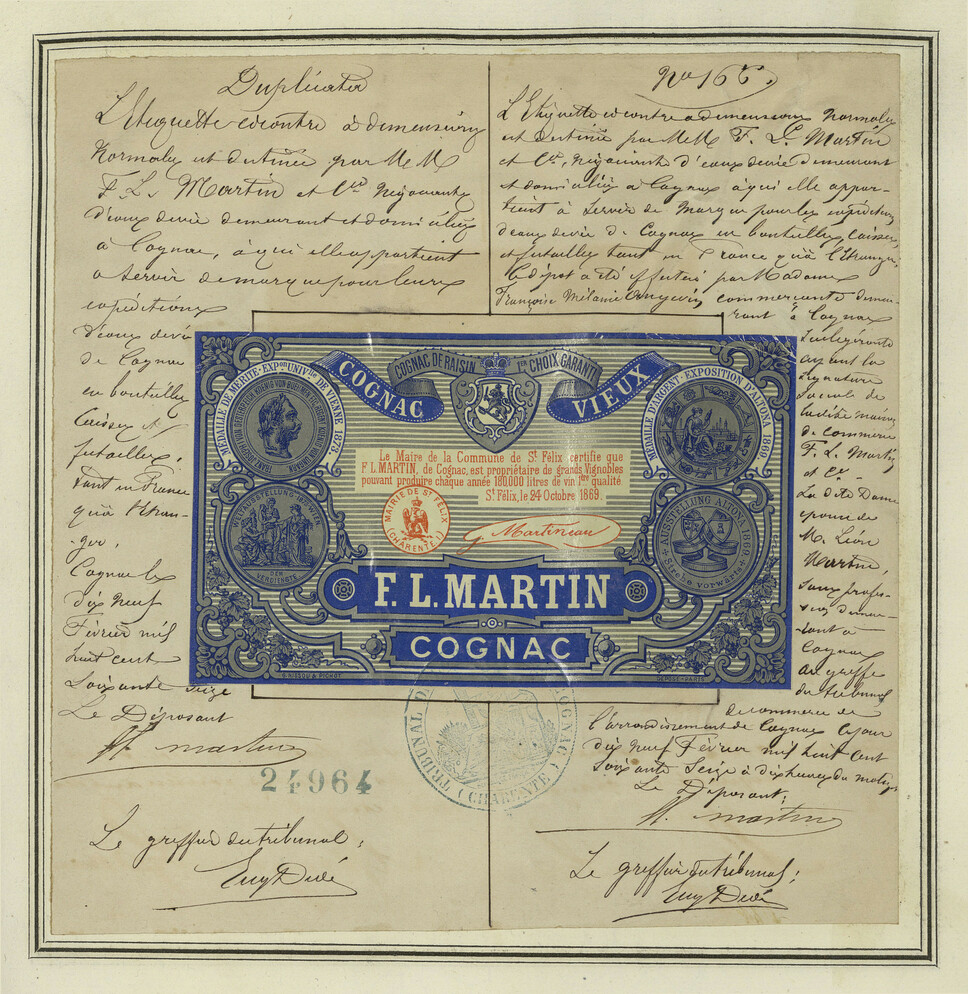 Duplicata
L'Etiquette ci contre à dimensions
Normales est destinée par M M
F. L. Martin et Cie Négociants
d'eaux de vie demeurant et domiciliés
à Cognac, à qui elle appartient
à servir de marque pour leurs
expéditions
d'eaux de vie
de Cognac
en bouteilles
Caisses et
futailles,
tant en France
qu'à l'Etran-
ger.
Cognac le
dix neuf
Février mil
huit cent
Soixante seize
Le Déposant
martin
24964
Le greffier du tribunal:
No 166
L'Etiquette ci contre a dimensions Normales
est destinée par M M F. L. Martin
et Cie, Négociants d'eaux de vie demeurant
et domiciliés à Cognac à qui elle appar-
tient à servir de Marque pour les expéditions
d'eaux de vie de Cognac en bouteilles, caisses,
et futailles tant en France qu'à l'Etranger.
Le dépôt a été effectué par Madame
Françoise Mélanie commerçante demeu-
rant à Cognac
ayant la
Signature
Sociale de
la dite maison
de commerce
F. L. Martin
et Cie
La dite Dame
épouse de
M. Léon
Martin,
sans profes-
sion demeu-
rant à
Cognac
au greffe
du tribunal
de commerce de
l'arrondissement de Cognac ce jour
dix neuf Février mil huit cent
Soixante Seize à dix heures du matin
Le Déposant:
martin
Le greffier du tribunal:
COGNAC DE RAISIN 1er CHOIX GARANTI
COGNAC VIEUX
MEDAILLE DE MERITE-EXPon UNIVlle DE VIENNE 1873.
MEDAILLE D'ARGENT-EXPOSITION D'ALTONA 1869
WELTAUSSTELLUNG 1873 WIEN
DEM VERDIENSTE
AUSSTELLUNG ALTONA 1869
Strebe vorwärts
Le Maire de la Commune de St Félix certifie que
F L. MARTIN, de Cognac, est propriétaire de grands Vignobles
pouvant produire chaque année 180.000 litres de vin 1ère qualité.
St Félix, le 24 Octobre 1869.
MAIRIE DE ST FELIX
(CHARENTE)
G. Martineau
F. L. MARTIN
COGNAC
DÉPOSÉ-PARIS
TRIBUNAL COGNAC
(CHARENTE)